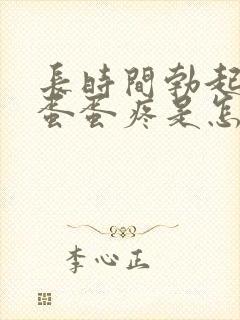 長時間勃起
蛋蛋疼是怎
李心正